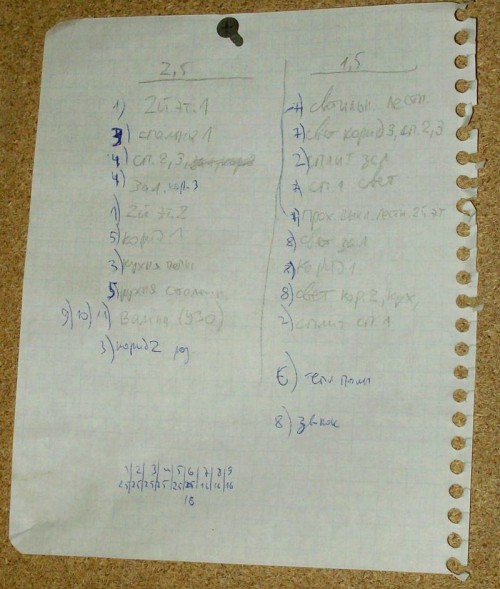 2,5
1) 2й эт. 1
3) спальня 1
4) сп. 2, 3,
4) зал. кор. 3
1) 2й эт. 2
5) корид 1
3) кухня
5) кухня
9) 10) 11) Ванна (УЗО)
3) корид 2 роз
1,5
7) светильн. лестн.
7) свет корид 3, сп. 2, 3
2) сплит зал
7) сп 1 свет
прох. выкл. лестн. 2й эт
8) свет зал
8) корид 1
8) свет кор. 2, кух,
2) сплит сп. 1
6) тепл пол
8) звонок
1| 2| 3| 4| 5| 6| 7| 8| 9
25|25|25|25|25|25|16|16|16
16